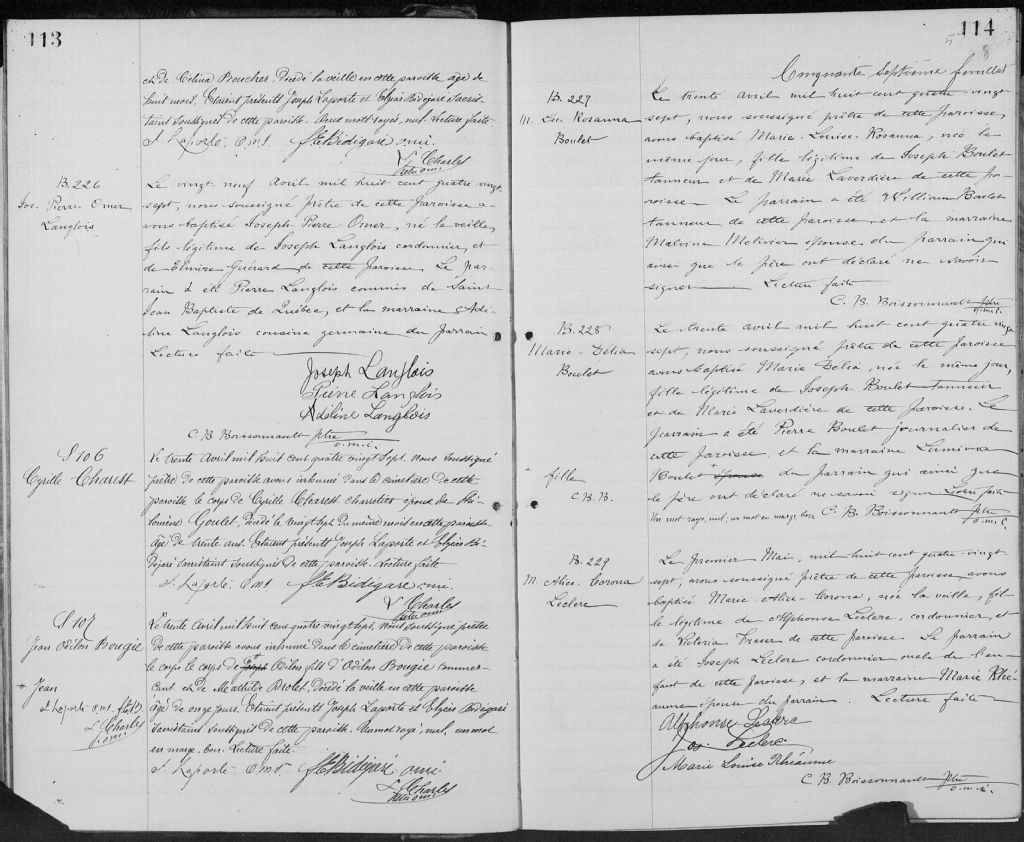 113
et de Célina Boucher, décédé la veille en cette paroisse âgé de
huit mois. Etaient présents Joseph Laporte et Elzéar Bédigaré Sacris-
tains soussignés de cette paroisse. Deux mots rayés, nul. Lecture faite
J. Laporte. O.m.I. fr E Bédigaré o.m.i.
L. Charles
Ptre o.m.i.
B. 226
Jos. Pierre Omer
Langlois
Le vingt-neuf Avril mil huit cent quatre-vingt-
sept, nous soussigné prêtre de cette paroisse a-
vons baptisé Joseph Pierre Omer, né la veille,
fils légitime de Joseph Langlois cordonnier, et
de Elmire Guérard de cette paroisse. Le par-
rain a été Pierre Langlois commis de Saint
Jean Baptiste de Québec, et la marraine Adé-
line Langlois cousine germaine du parrain
Lecture faite
Joseph Langlois
Pierre Langlois
Adeline Langlois
C. B. Boissonnault Ptre
o.m.i.
S 106
Cyrille Charest
Le trente Avril mil huit cent quatre vingt sept. Nous soussigné
prêtre de cette paroisse avons inhumé dans le cimetière de cette
paroisse le corps de Cyrille Charest Charretier époux de Phi-
lomène Goulet, décédé le vingt sept du même mois en cette paroisse
âgé de trente ans. Etaient présents Joseph Laporte et Elzéar Bé-
digaré Sacristains soussignés de cette paroisse. Lecture faite
J. Laporte. O.m.I. fr E Bédigaré o.m.i.
L. Charles
Ptre o.m.i.
S 107
Jean Odilon Bougie
Le trente Avril mil huit cent quatre vingt sept, Nous soussigné prêtre
de cette paroisse avons inhumé dans le cimetière de cette paroisse
le corps le corps de Joseph Odilon fils d'Odilon Bougie commer-
çant et de Mathilde Drolet, décédé la veille en cette paroisse
+ Jean
J. Laporte o.m.I. fr E B.
L. Charles
o.m.i.
âgé de onze jours. Etaient présents Joseph Laporte et Elzéar Bédigaré
Sacristains soussignés de cette paroisse. Un mot rayé, nul, un mot
en marge, bon. Lecture faite
J. Laporte. O.m.I. fr E Bédigaré omi
L. Charles
Ptre o.m.i.
114
Cinquante septième feuillet
B. 227
M. Lse. Rosanna
Boulet
Le trente avril mil huit cent quatre vingt
sept, nous soussigné prêtre de cette paroisse,
avons baptisé Marie-Louise-Rosanna, née le
même jour, fille légitime de Joseph Boulet
tanneur et de Marie Laverdière de cette pa-
roisse. Le parrain a été William Boulet
tanneur de cette paroisse, et la marraine
Malvina Melvier épouse du parrain qui
ainsi que le père ont déclaré ne savoir
signer. Lecture faite
C. B. Boissonnault Ptre
o.m.i.
B. 228
Marie-Délia
Boulet
Le trente avril mil huit cent quatre vingt
sept, nous soussigné prêtre de cette paroisse
avons baptisé Marie Délia, née le même jour,
fille légitime de Joseph Boulet tanneur
et de Marie Laverdière de cette paroisse. Le
parrain a été Pierre Boulet journalier de
cette paroisse, et la marraine
+ fille
C. B. B.
Boulet + épouse du parrain qui ainsi que
le père ont déclaré ne savoir signer Lecture faite
Un mot rayé, nul, un mot en marge, bon C. B. Boissonnault Ptre
o.m.i.
B. 229
M. Alice-Corona
Leclerc
Le premier Mai, mil huit cent quatre-vingt
sept, nous soussigné prêtre de cette paroisse avons
baptisé Marie-Alice-Corona, née la veille, fil-
le légitime de Alphonse Leclerc, cordonnier, et
de Victoria Fraser de cette paroisse. Le parrain
a été Joseph Leclerc cordonnier oncle de l'en-
fant de cette paroisse, et la marraine Marie Rhé-
aume épouse du parrain. Lecture faite
Alphonse Leclerc
Jos. Leclerc
Marie Louise Rhéaume
C. B. Boissonnault Ptre
o.m.i.